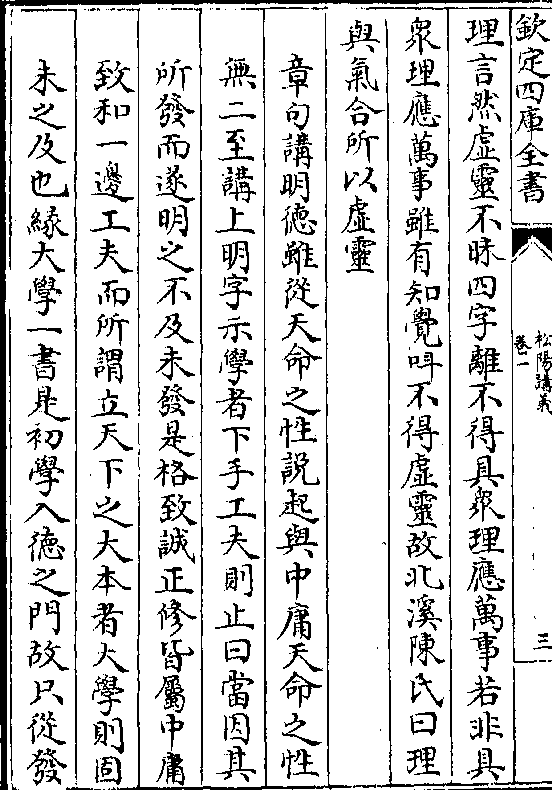 欽定四庫全書
松陽講義
卷一
三
理言然虛靈不昧四字離不得具衆理應萬事若非具
衆理應萬事雖有知覺呌不得虛靈故北溪陳氏曰理
與氣合所以虛靈
章句講明德雖從天命之性說起與中庸天命之性
無二至講上明字示學者下手工夫則止曰當因其
所發而遂明之不及未發是格致誠正修皆屬中庸
致和一邊工夫而所謂立天下之大本者大學則固
未之及也緣大學一書是初學入德之門故只從發